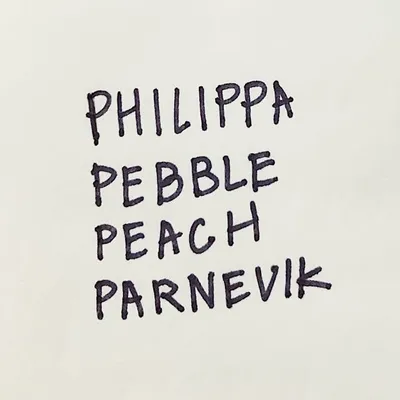 PHILIPPA
PEBBLE
PEACH
PARNEVIK